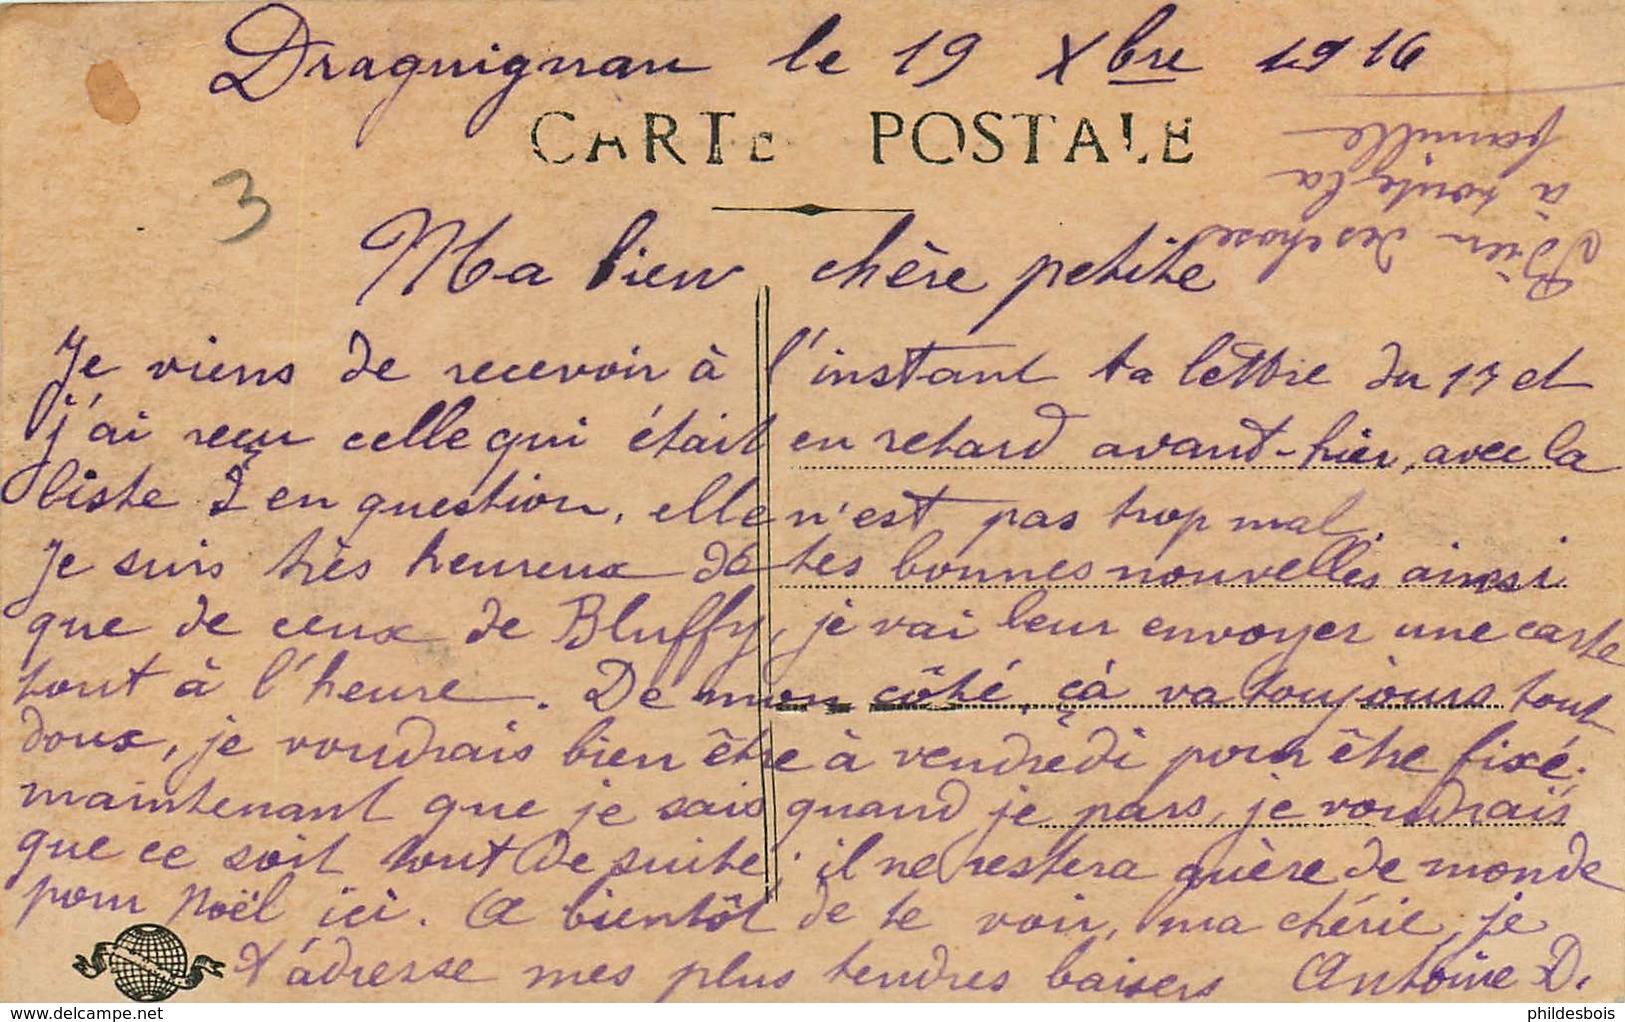 Draguignan le 19 Xbre 1916
CARTE POSTALE
3
Bien des choses
à toute la
famille
Ma bien chère petite
Je viens de recevoir à l'instant ta lettre du 17 et
j'ai reçu celle qui était en retard avant-hier, avec la
liste en question, elle n'est pas trop mal.
Je suis très heureux de tes bonnes nouvelles ainsi
que de ceux de Bluffy, je vai leur envoyer une carte
tout à l'heure. De mon côté, çà va toujours tout
doux, je voudrais bien être à vendredi pour être fixé.
maintenant que je sais quand je pars, je voudrais
que ce soit tout de suite, il ne restera guère de monde
pour Noël ici. A bientôt de te voir, ma chérie, je
t'adresse mes plus tendres baisers Antoine D.
www.delcampe.net
phildesbois